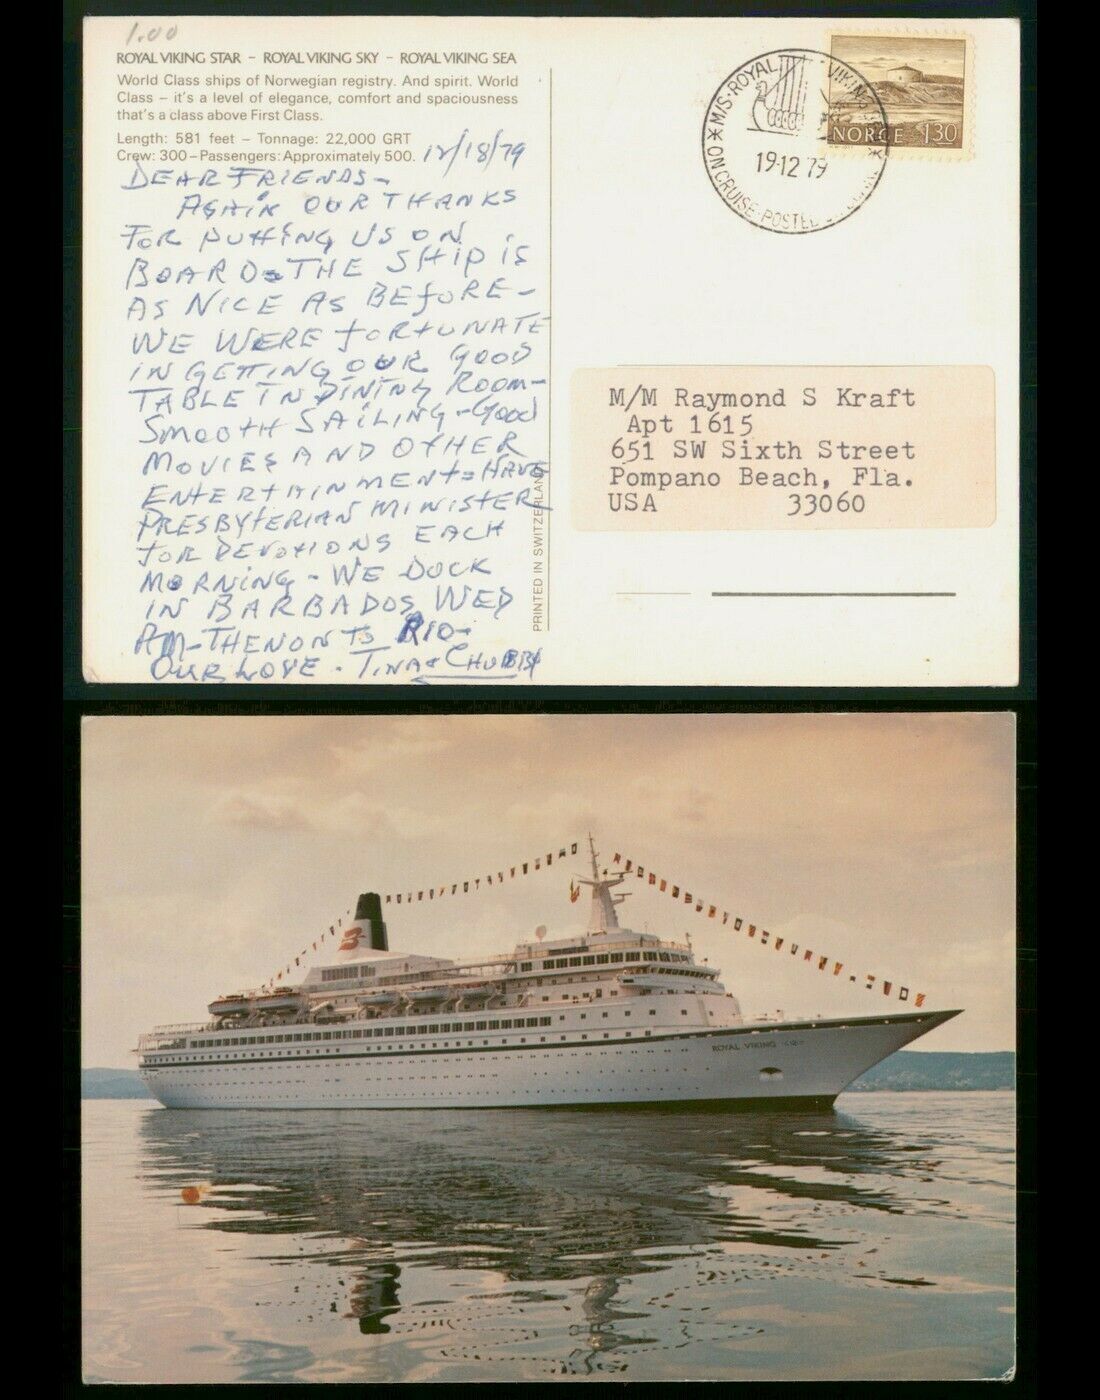 1.00
ROYAL VIKING STAR – ROYAL VIKING SKY – ROYAL VIKING SEA
World Class ships of Norwegian registry. And spirit. World
Class – it's a level of elegance, comfort and spaciousness
that's a class above First Class.
Length: 581 feet – Tonnage: 22,000 GRT
Crew: 300 – Passengers: Approximately 500.
12/18/79
DEAR FRIENDS –
AGAIN OUR THANKS
FOR PUTTING US ON
BOARD – THE SHIP IS
AS NICE AS BEFORE –
WE WERE FORTUNATE
IN GETTING OUR GOOD
TABLE IN DINING ROOM –
SMOOTH SAILING – GOOD
MOVIES AND OTHER
ENTERTAINMENT – HAVE
PRESBYTERIAN MINISTER
FOR DEVOTIONS EACH
MORNING – WE DOCK
IN BARBADOS WED
AM – THEN ON TO RIO –
OUR LOVE – TINA & CHUBBY
PRINTED IN SWITZERLAND
M/S ROYAL VIKING
19·12 79
ON CRUISE · POSTED
NORGE 130
M/M Raymond S Kraft
Apt 1615
651 SW Sixth Street
Pompano Beach, Fla.
USA 33060
ROYAL VIKING